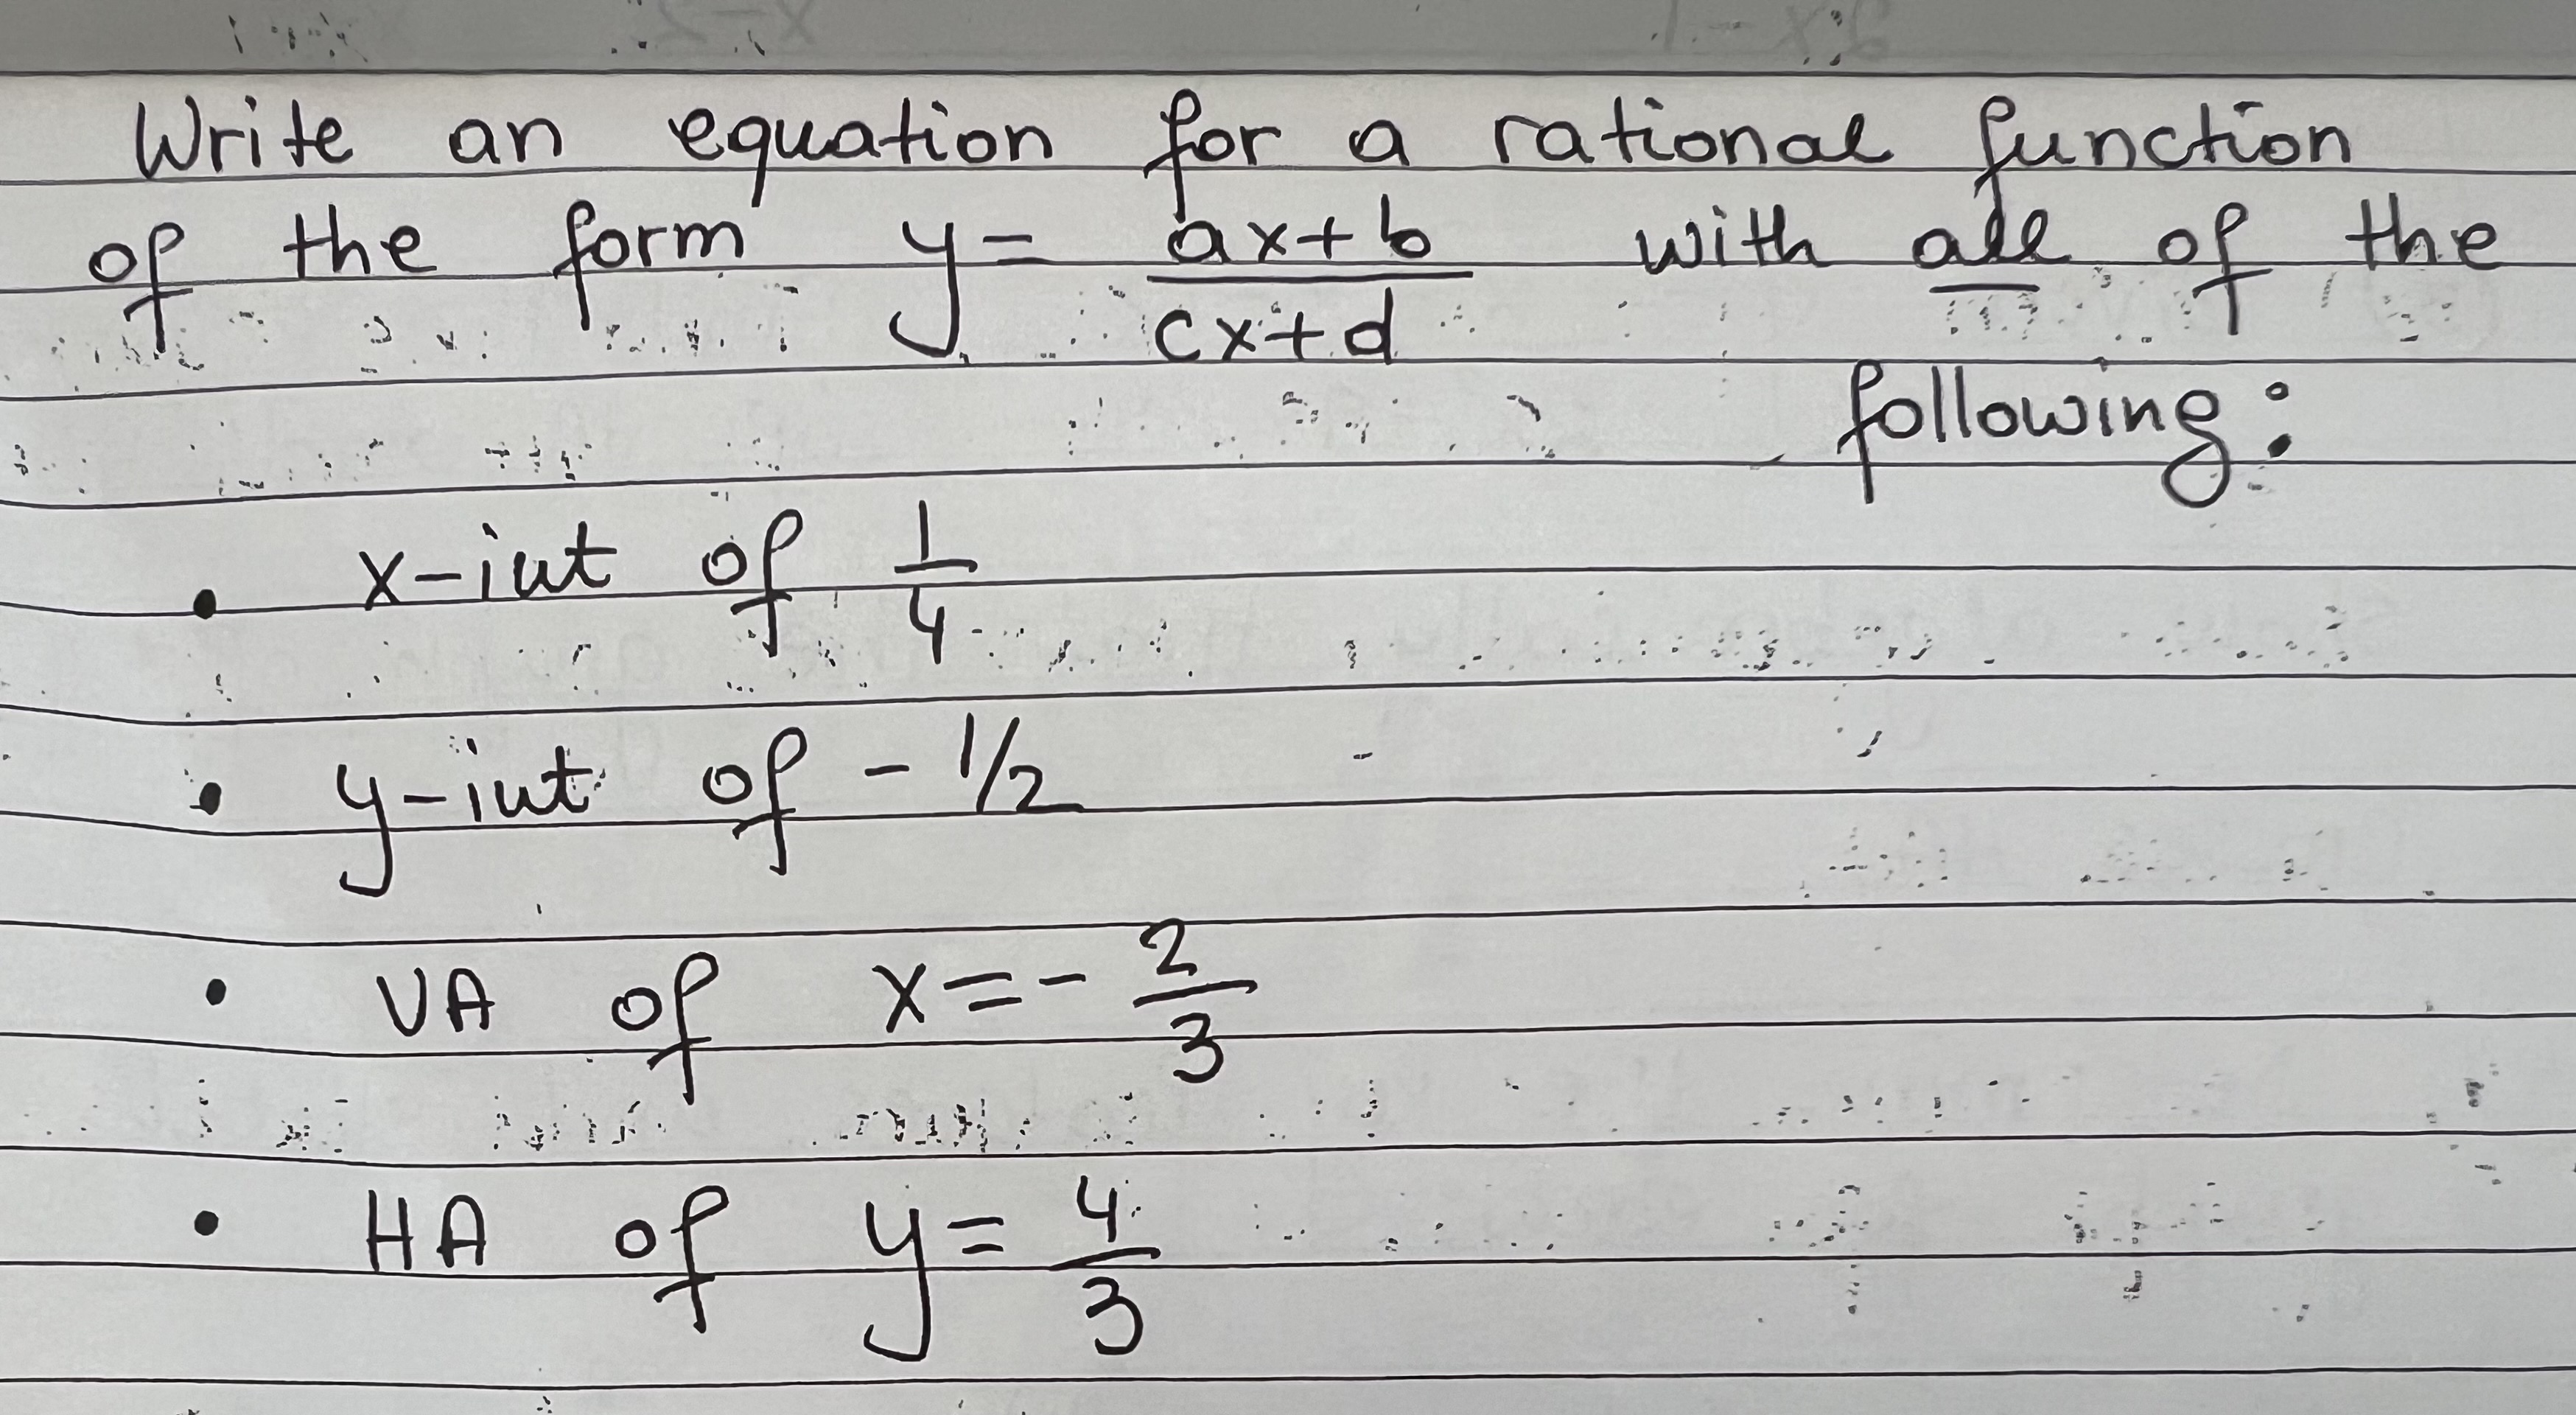 Write an equation for a rational function
of the form y = (ax+b)/(cx+d) with all of the
following:
• x-int of 1/4
• y-int of - 1/2
• VA of x = - 2/3
• HA of y = 4/3